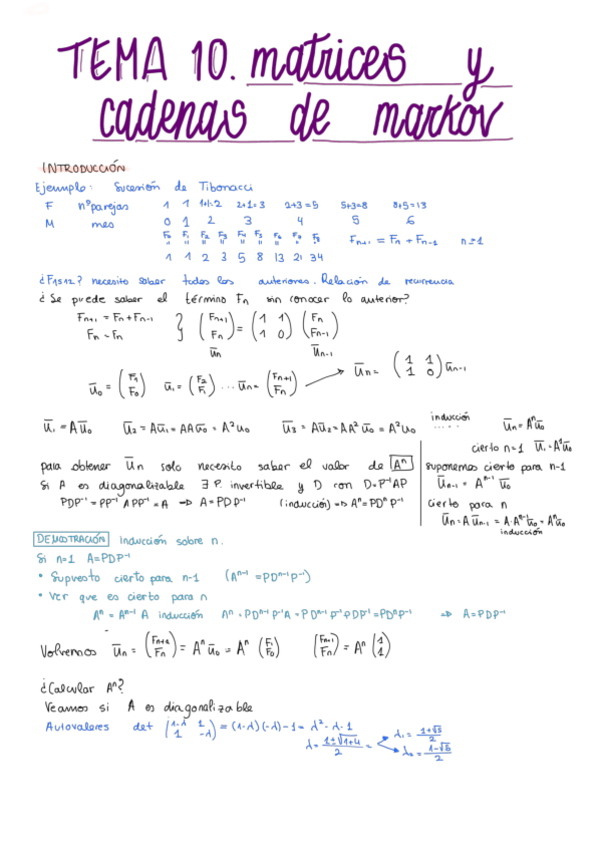 TEMA 10. matrices y
cadenas de markov
INTRODUCCIÓN
Ejemplo: Sucesión de Tibonacci
F nº parejas 1 1 1+1=2 2+1=3 2+3=5 5+3=8 8+5=13
M mes 0 1 2 3 4 5 6
F₀ F₁ F₂ F₃ F₄ F₅ F₆ F₇ F₈ Fn+1 = Fn + Fn-1 n≥1
1 1 2 3 5 8 13 21 34
¿F1512? necesito saber todos los anteriores. Relación de recurrencia
¿Se puede saber el término Fn sin conocer lo anterior?
Fn+1 = Fn + Fn-1 } (Fn+1 Fn) = (1 1 1 0) (Fn Fn-1)
Fn = Fn
ūn ūn-1
ū₀ = (F₁ F₀) ū₁ = (F₂ F₁) ... ūn = (Fn+1 Fn) → ūn = (1 1 1 0) ūn-1
ū₁ = Aū₀ ū₂ = Aū₁ = AAū₀ = A²u₀ ū₃ = Aū₂ = AA²ū₀ = A³u₀ inducción .... ūn = Aⁿū₀
cierto n=1 ū₁ = A¹ū₀
para obtener ūn solo necesito saber el valor de Aⁿ
Si A es diagonalizable ∃ P invertible y D con D=P⁻¹AP
PDP⁻¹ = PP⁻¹APP⁻¹ = A ⇒ A = PDP⁻¹ (inducción) ⇒ Aⁿ = PDⁿP⁻¹
suponemos cierto para n-1
ūn-1 = Aⁿ⁻¹ ū₀
cierto para n
ūn = A ūn-1 = A·Aⁿ⁻¹ū₀ = Aⁿū₀
inducción
DEMOSTRACIÓN inducción sobre n.
Si n=1 A=PDP⁻¹
• Supuesto cierto para n-1 (Aⁿ⁻¹ = PDⁿ⁻¹P⁻¹)
• Ver que es cierto para n
Aⁿ = Aⁿ⁻¹ A inducción Aⁿ = PDⁿ⁻¹P⁻¹A = PDⁿ⁻¹P⁻¹PDP⁻¹ = PDⁿP⁻¹ ⇒ A = PDP⁻¹
Volvemos ūn = (Fn+1 Fn) = Aⁿū₀ = Aⁿ (F₁ F₀) (Fn+1 Fn) = Aⁿ (1 1)
¿Calcular Aⁿ?
Veamos si A es diagonalizable
Autovalores det (1-λ 1 1 -λ) = (1-λ)(-λ)-1 = λ²-λ-1
λ = 1±√1+4 / 2 = λ₁ = 1+√5 / 2
λ₂ = 1-√5 / 2